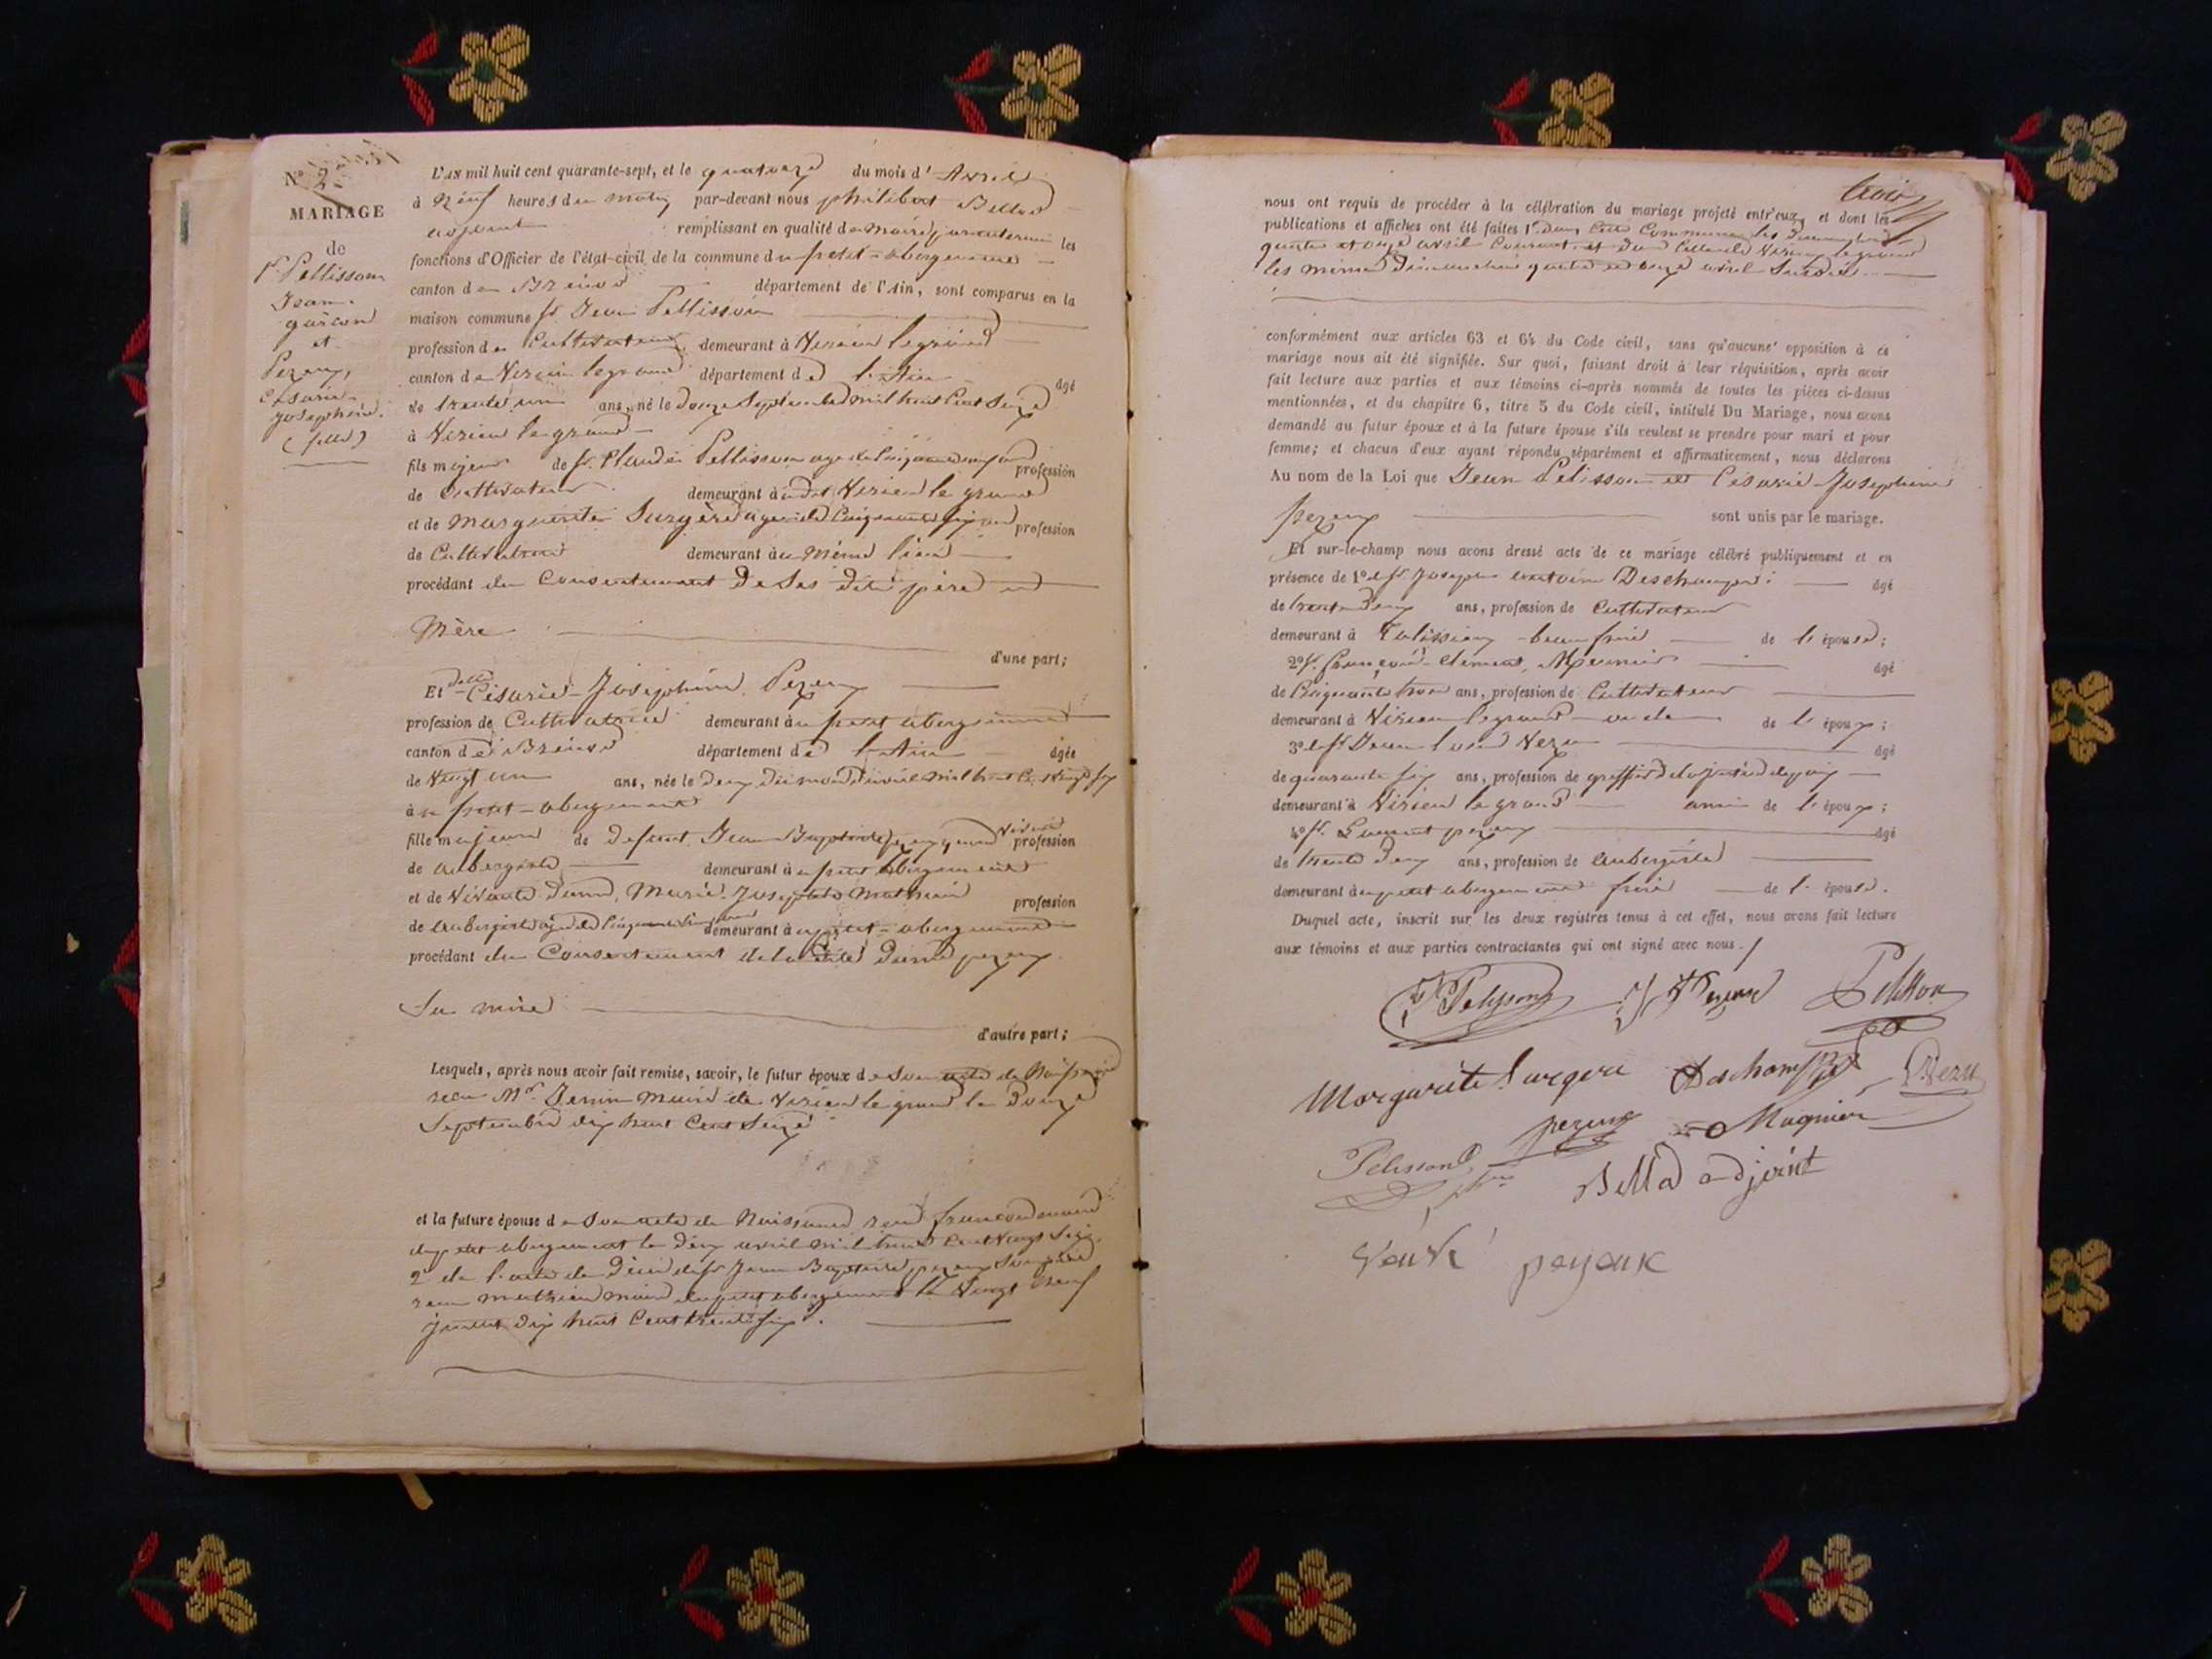 N° 2
MARIAGE
de
Sr Pellisson
Jean
garçon
et
Pezeux,
Césarie
Joséphine
(fille)
L'an mil huit cent quarante-sept, et le quatorze du mois d'Avril
à Neuf heures du matin par-devant nous philibert Bellod
adjoint remplissant en qualité de Maire les
fonctions d'Officier de l'état-civil de la commune du petit-abergement
canton de Brénod département de l'Ain, sont comparus en la
maison commune Sr Jean Pellisson
profession de Cultivateur demeurant à Virieu le grand
canton de Virieu le grand département de l'Ain âgé
de trente un ans, né le douze Septembre mil huit Cent Seize
à Virieu le grand
fils majeur de Sr Claude Pellisson âgé de profession
de Cultivateur demeurant à Virieu le grand
et de Marguerite Surgère âgée de Cinquante six ans profession
de Cultivatrice demeurant au Même lieu
procédant du Consentement de Ses dits père et
Mère
d'une part;
Et delle Césarie Joséphine Pezeux
profession de Cultivatrice demeurant au petit abergement
canton de Brénod département de l'Ain âgée
de Vingt un ans, née le deux du mois d'avril mil huit Cent Vingt six
au petit-abergement
fille majeure de défunt Jean Baptiste pezeux profession
de aubergiste demeurant au petit abergement
et de Vivante dame Marie Josephte Mathieu profession
de aubergiste âgée de demeurant au petit-abergement
procédant du Consentement de la dite dame pezeux
Sa mère
d'autre part;
Lesquels, après nous avoir fait remise, savoir, le futur époux de Son acte de Naissance
reçu Mr Jenin Maire de Virieu le grand le douze
Septembre dix huit Cent Seize
et la future épouse de Son acte de Naissance reçu
du petit abergement le deux avril mil huit Cent Vingt Six
2° de l'acte de décès de Sr Jean Baptiste pezeux Son père
reçu Mathieu Maire du petit abergement le Vingt Neuf
dix huit Cent trente six.
trois
nous ont requis de procéder à la célébration du mariage projeté entr'eux, et dont les
publications et affiches ont été faites 1° dans Cette Commune les dimanches
quatre et onze avril Courant et dans Celle de Virieu le grand
les mêmes dimanches quatre et onze avril Susdits
conformément aux articles 63 et 64 du Code civil, sans qu'aucune opposition à ce
mariage nous ait été signifiée. Sur quoi, faisant droit à leur réquisition, après avoir
fait lecture aux parties et aux témoins ci-après nommés de toutes les pièces ci-dessus
mentionnées, et du chapitre 6, titre 5 du Code civil, intitulé Du Mariage, nous avons
demandé au futur époux et à la future épouse s'ils veulent se prendre pour mari et pour
femme; et chacun d'eux ayant répondu séparément et affirmativement, nous déclarons
Au nom de la Loi que Jean Pelisson et Césarie Joséphine
pezeux sont unis par le mariage.
Et sur-le-champ nous avons dressé acte de ce mariage célébré publiquement et en
présence de 1° le Sr Joseph Deschamps âgé
de trente deux ans, profession de Cultivateur
demeurant à Talissieu beau frère de l'épouse;
2° Sr françois Clément âgé
de Cinquante trois ans, profession de Cultivateur
demeurant à Virieu le grand oncle de l'époux;
3° le Sr Jean Louis Vezu âgé
de quarante six ans, profession de greffier de la justice de paix
demeurant à Virieu le grand ami de l'époux;
4° Sr Laurent pezeux âgé
de trente deux ans, profession de aubergiste
demeurant au petit abergement frère de l'épouse.
Duquel acte, inscrit sur les deux registres tenus à cet effet, nous avons fait lecture
aux témoins et aux parties contractantes qui ont signé avec nous.
Pelisson J Pezeux Pelisson
Margarite Surgere Deschamps Vezu
pezeux Mugnier
Pelisson Bellod adjoint
Veuve pezeux